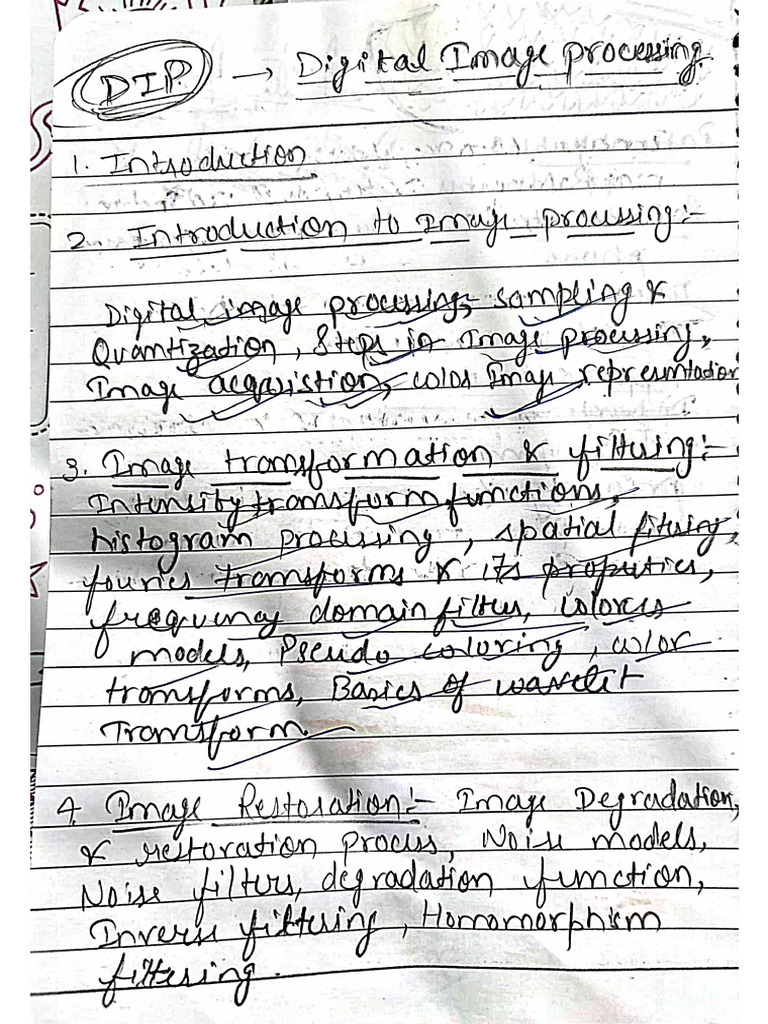 DIP → Digital Image processing
1. Introduction
2. Introduction to Image processing:-
Digital image processing, sampling &
Quantization, Steps in Image processing,
Image acquistion, color Image representation
3. Image transformation & filtering:-
Intensity transform functions,
histogram processing, spatial fitring,
fourier transforms & its properties,
frequency domain filters, colores
models, Pseudo coloring, color
transforms, Basics of wavelet
Transform
4. Image Restoration:- Image Degradation,
& restoration process, Noise models,
Noise filters, degradation function,
Inverse filtering, Homomorphism
filtering.